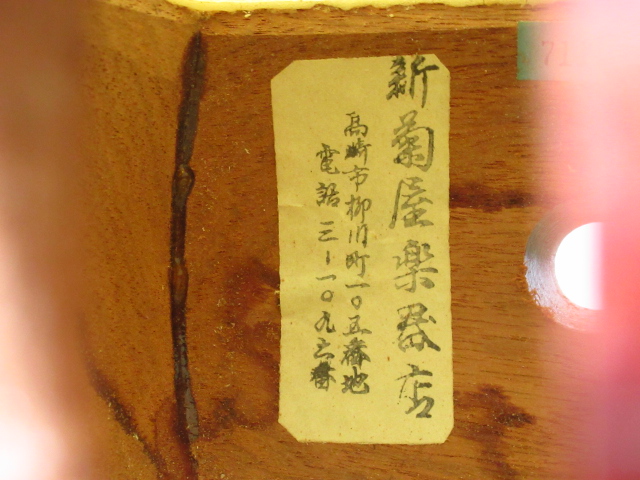 新菊屋楽器店
高崎市柳川町一〇五番地
電話三-一〇九六番
71